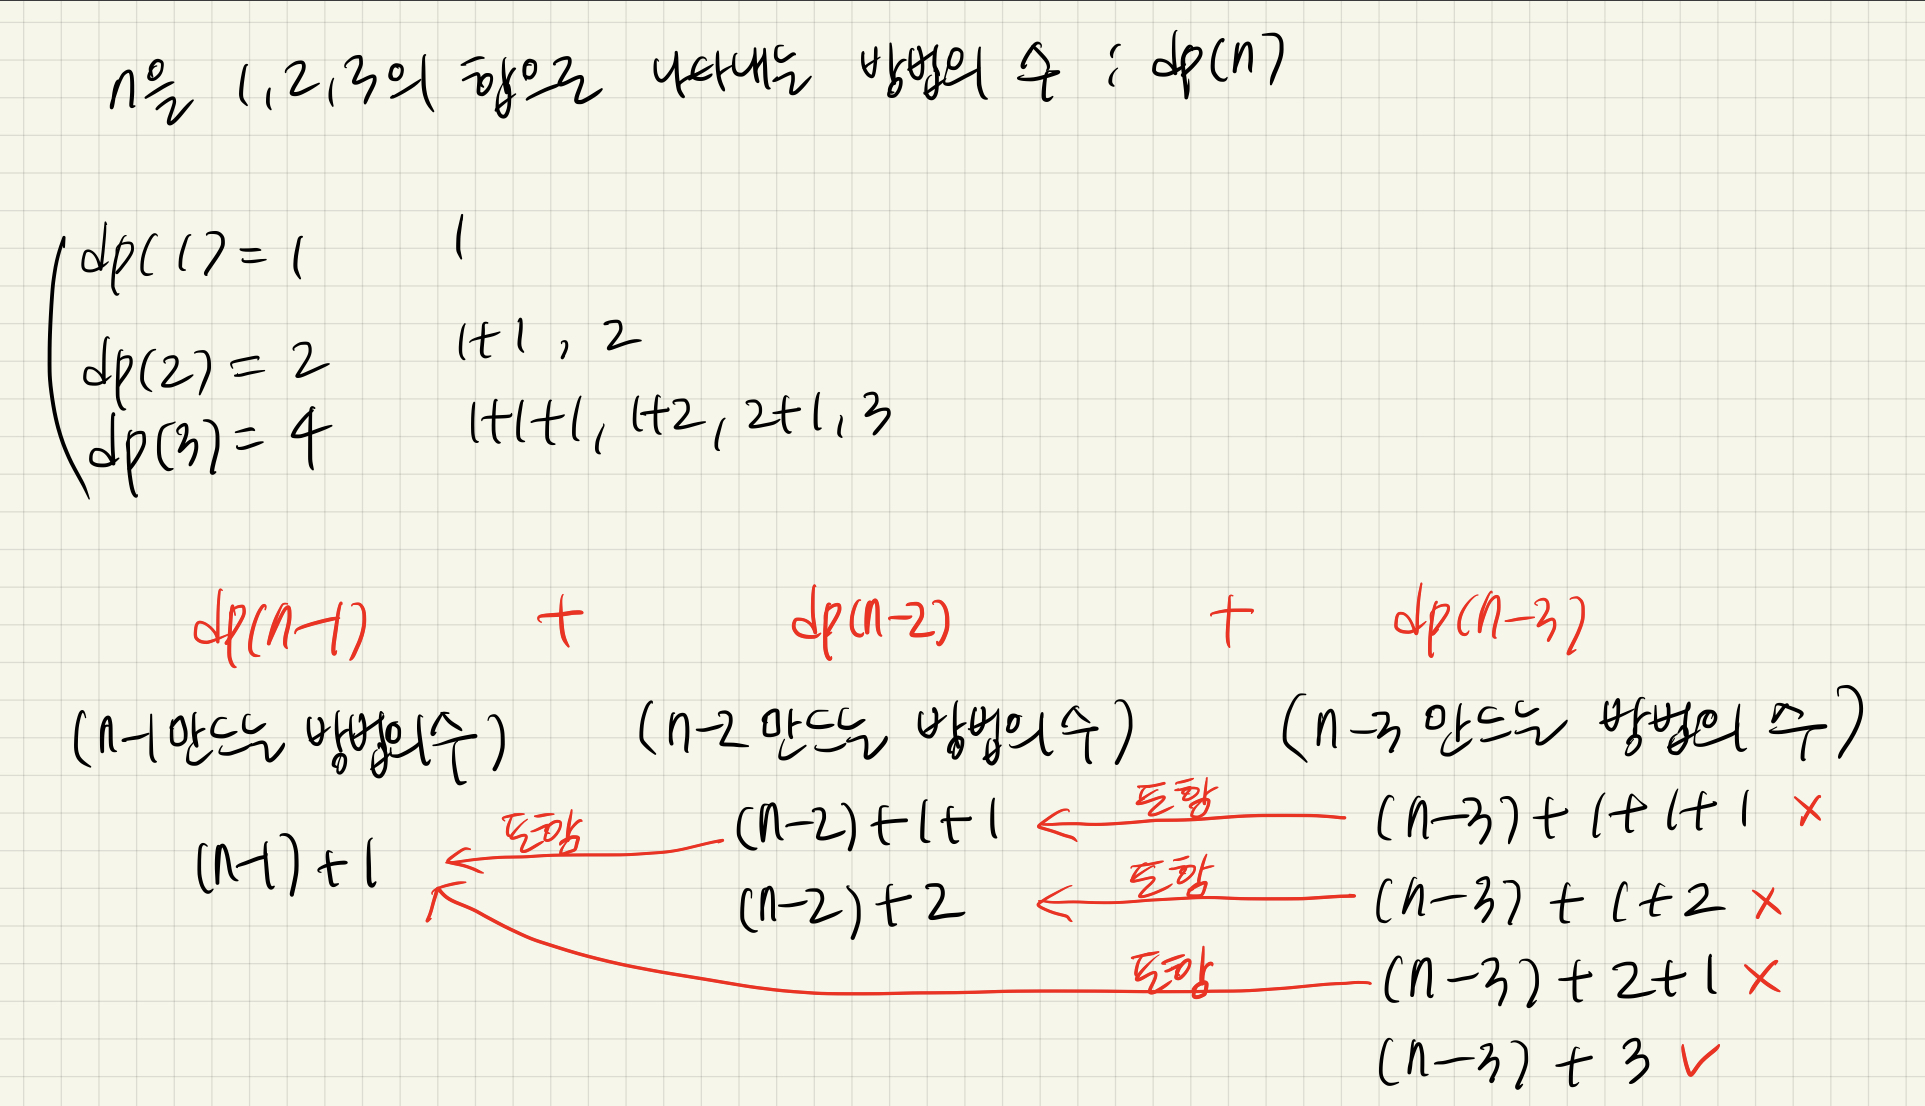 n을 1,2,3의 합으로 나타내는 방법의 수 : dp(n)
dp(1) = 1 1
dp(2) = 2 1+1, 2
dp(3) = 4 1+1+1, 1+2, 2+1, 3
dp(n-1) + dp(n-2) + dp(n-3)
(n-1 만드는 방법의 수) (n-2 만드는 방법의 수) (n-3 만드는 방법의 수)
(n-1)+1 포함 (n-2)+1+1 포함 (n-3)+1+1+1 ×
(n-2)+2 포함 (n-3)+1+2 ×
포함 (n-3)+2+1 ×
(n-3)+3 ✓